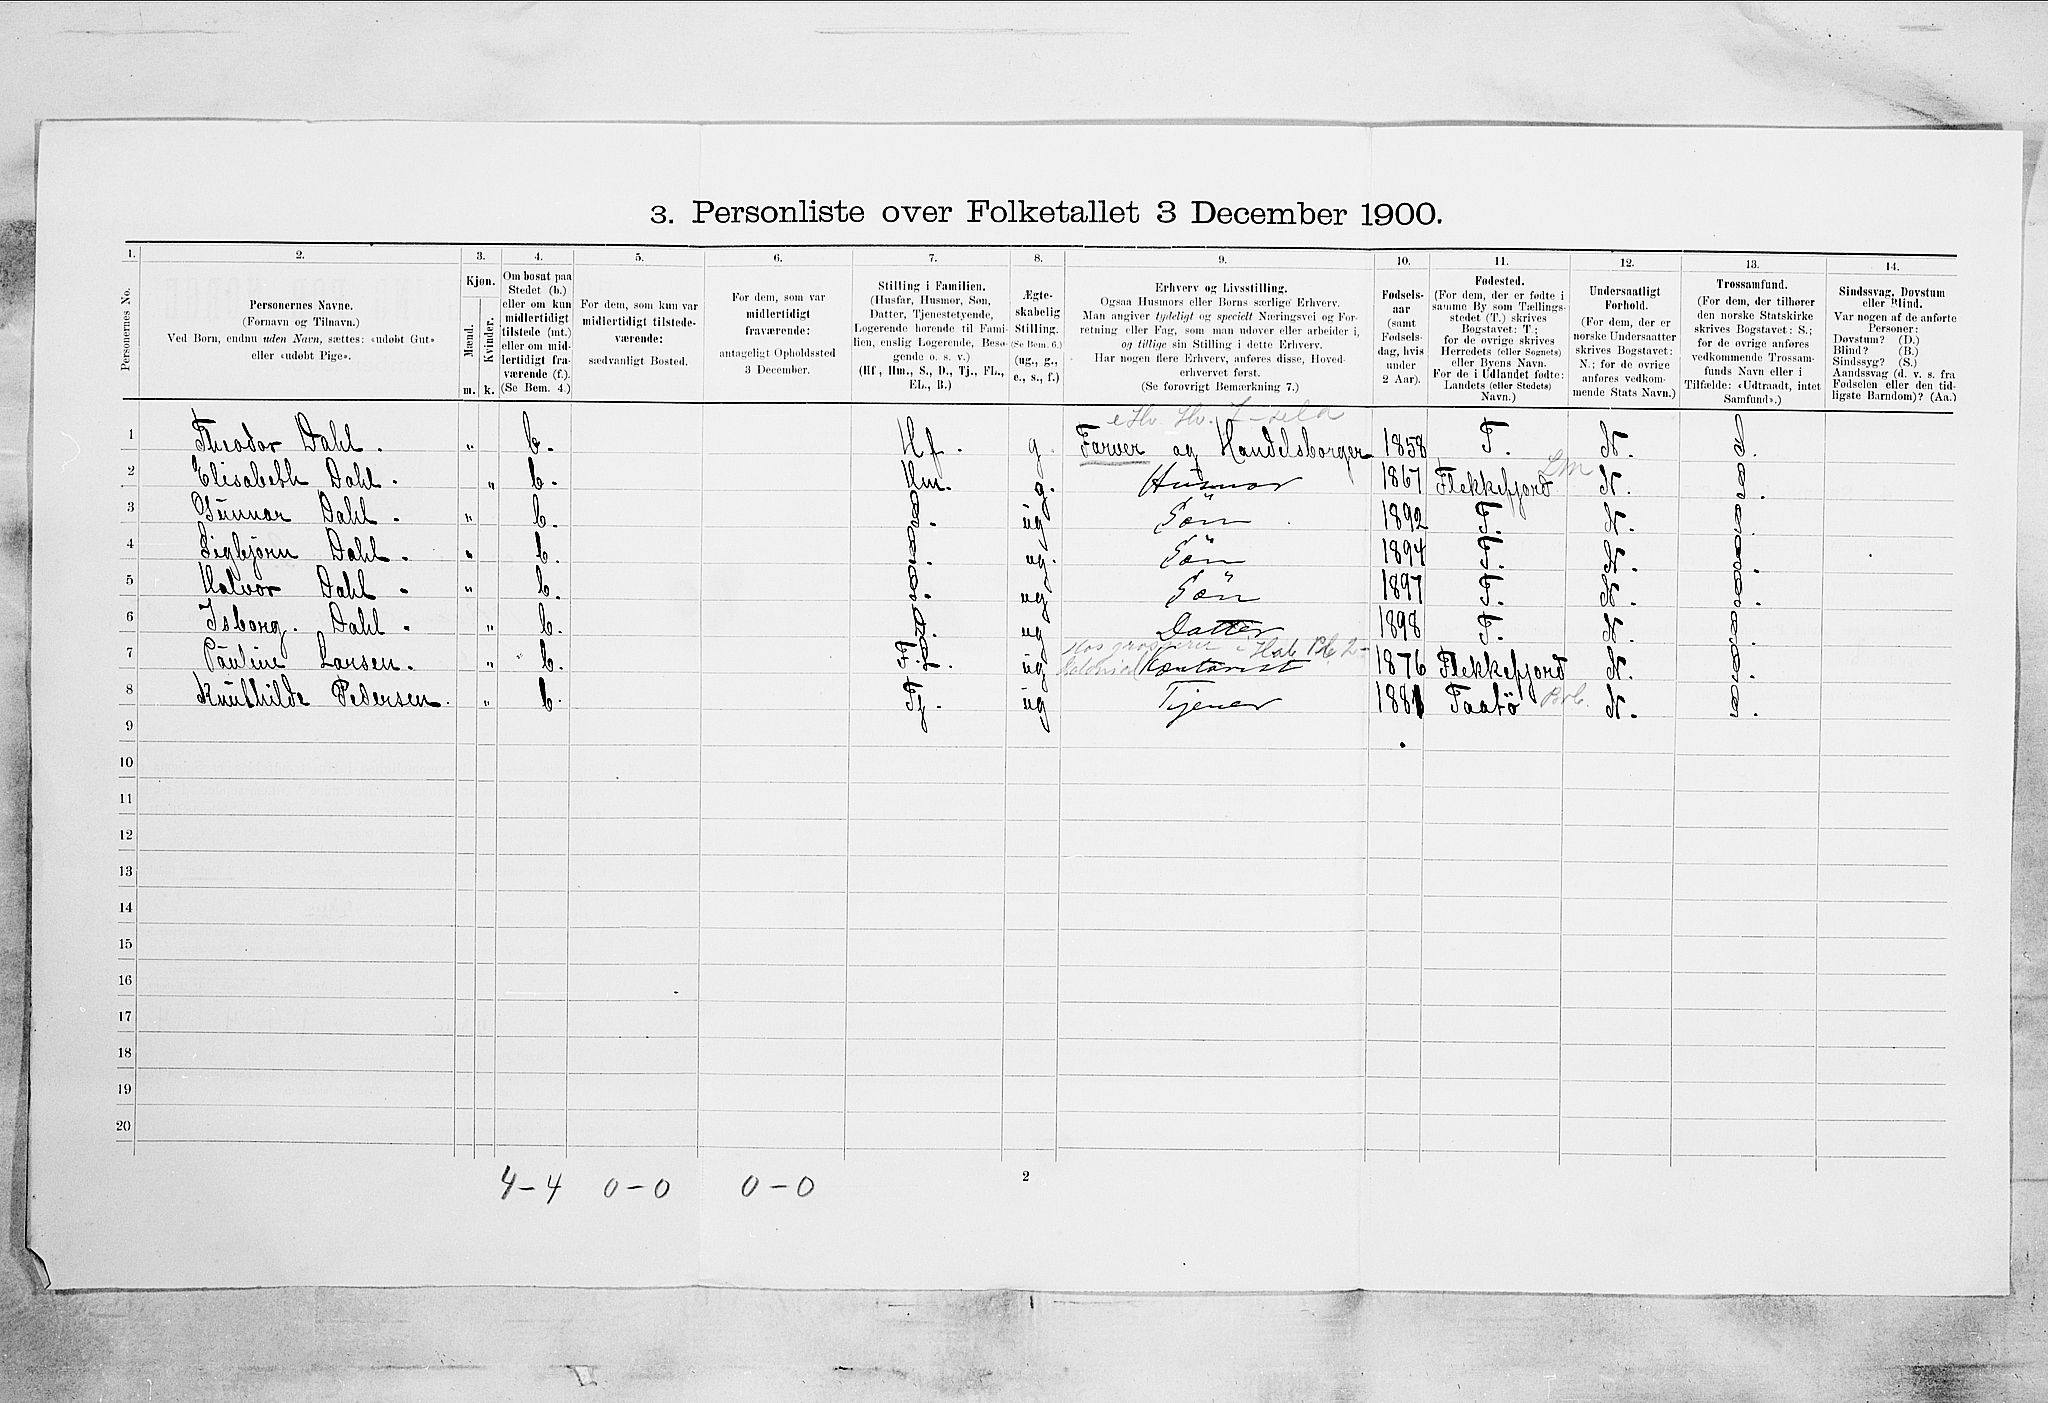 3. Personliste over Folketallet 3 December 1900.
1. 2. 3. 4. 5. 6. 7. 8. 9. 10. 11. 12. 13. 14.
Personernes No.
Personernes Navne.
(Fornavn og Tilnavn.)
Ved Børn, endnu uden Navn, sættes: «udøbt Gut»
eller «udøbt Pige».
Kjøn.
Mænd.
Kvinder.
m. k.
Om bosat paa
Stedet (b.)
eller om kun
midlertidigt
tilstede (mt.)
eller om mid-
lertidigt fra-
værende (f.).
(Se Bem. 4.)
For dem, som kun var
midlertidigt tilstede-
værende:
sædvanligt Bosted.
For dem, som var
midlertidigt
fraværende:
antageligt Opholdssted
3 December.
Stilling i Familien.
(Husfar, Husmor, Søn,
Datter, Tjenestetyende,
Logerende hørende til Fami-
lien, enslig Logerende, Besø-
gende o. s. v.)
(Hf., Hm., S., D., Tj., FL.,
EL., B.)
Ægte-
skabelig
Stilling.
(Se Bem. 6.)
(ug., g.,
e., s., f.)
Erhverv og Livsstilling.
Ogsaa Husmors eller Børns særlige Erhverv.
Man angiver tydeligt og specielt Næringsvei og For-
retning eller Fag, som man udøver eller arbeider i,
og tillige sin Stilling i dette Erhverv.
Har nogen flere Erhverv, anføres disse, Hoved-
erhvervet først.
(Se forøvrigt Bemærkning 7.)
Fødsels-
aar
(samt
Fødsels-
dag, hvis
under
2 Aar).
Fødested.
(For dem, der er fødte i
samme By som Tællings-
stedet (T.) skrives
Bogstavet: T.;
for de øvrige skrives
Herredets (eller Sognets)
eller Byens Navn.
For de i Udlandet fødte:
Landets (eller Stedets)
Navn.)
Undersaatligt
Forhold.
(For dem, der er
norske Undersaatter
skrives Bogstavet:
N.; for de øvrige
anføres vedkom-
mende Stats Navn.)
Trossamfund.
(For dem, der tilhører
den norske Statskirke
skrives Bogstavet: S.;
for de øvrige anføres
vedkommende Trossam-
funds Navn eller i
Tilfælde: «Udtraadt, intet
Samfund».)
Sindssvag, Døvstum
eller Blind.
Var nogen af de anførte
Personer:
Døvstum? (D.)
Blind? (B.)
Sindssyg? (S.)
Aandssvag (d. v. s. fra
Fødselen eller den tid-
ligste Barndom)? (Aa.)
1 Theodor Dahl. „ b. Hf. g. Farver og Handelsborger 1858 T. N. S.
2 Elisabeth Dahl. „ b. Hm. g. Husmor 1867 Flekkefjord N. S.
3 Gunnar Dahl. „ b. S. ug Sön 1892 T. N. S.
4 Sigbjörn Dahl. „ b. S. ug. Sön 1894 T. N. S.
5 Halvor Dahl. „ b. S. ug Sön 1897 T. N. S.
6 Isborg. Dahl. „ b. D. ug Datter 1898 T. N. S.
7 Pauline Larsen. „ b. ug Contorist 1876 Flekkefjord N. S.
8 Knuthilde Pedersen. „ b. Tj. ug Tjener 1881 Faatö N. S.
9
10
11
12
13
14
15
16
17
18
19
20
4-4 0-0 0-0
2